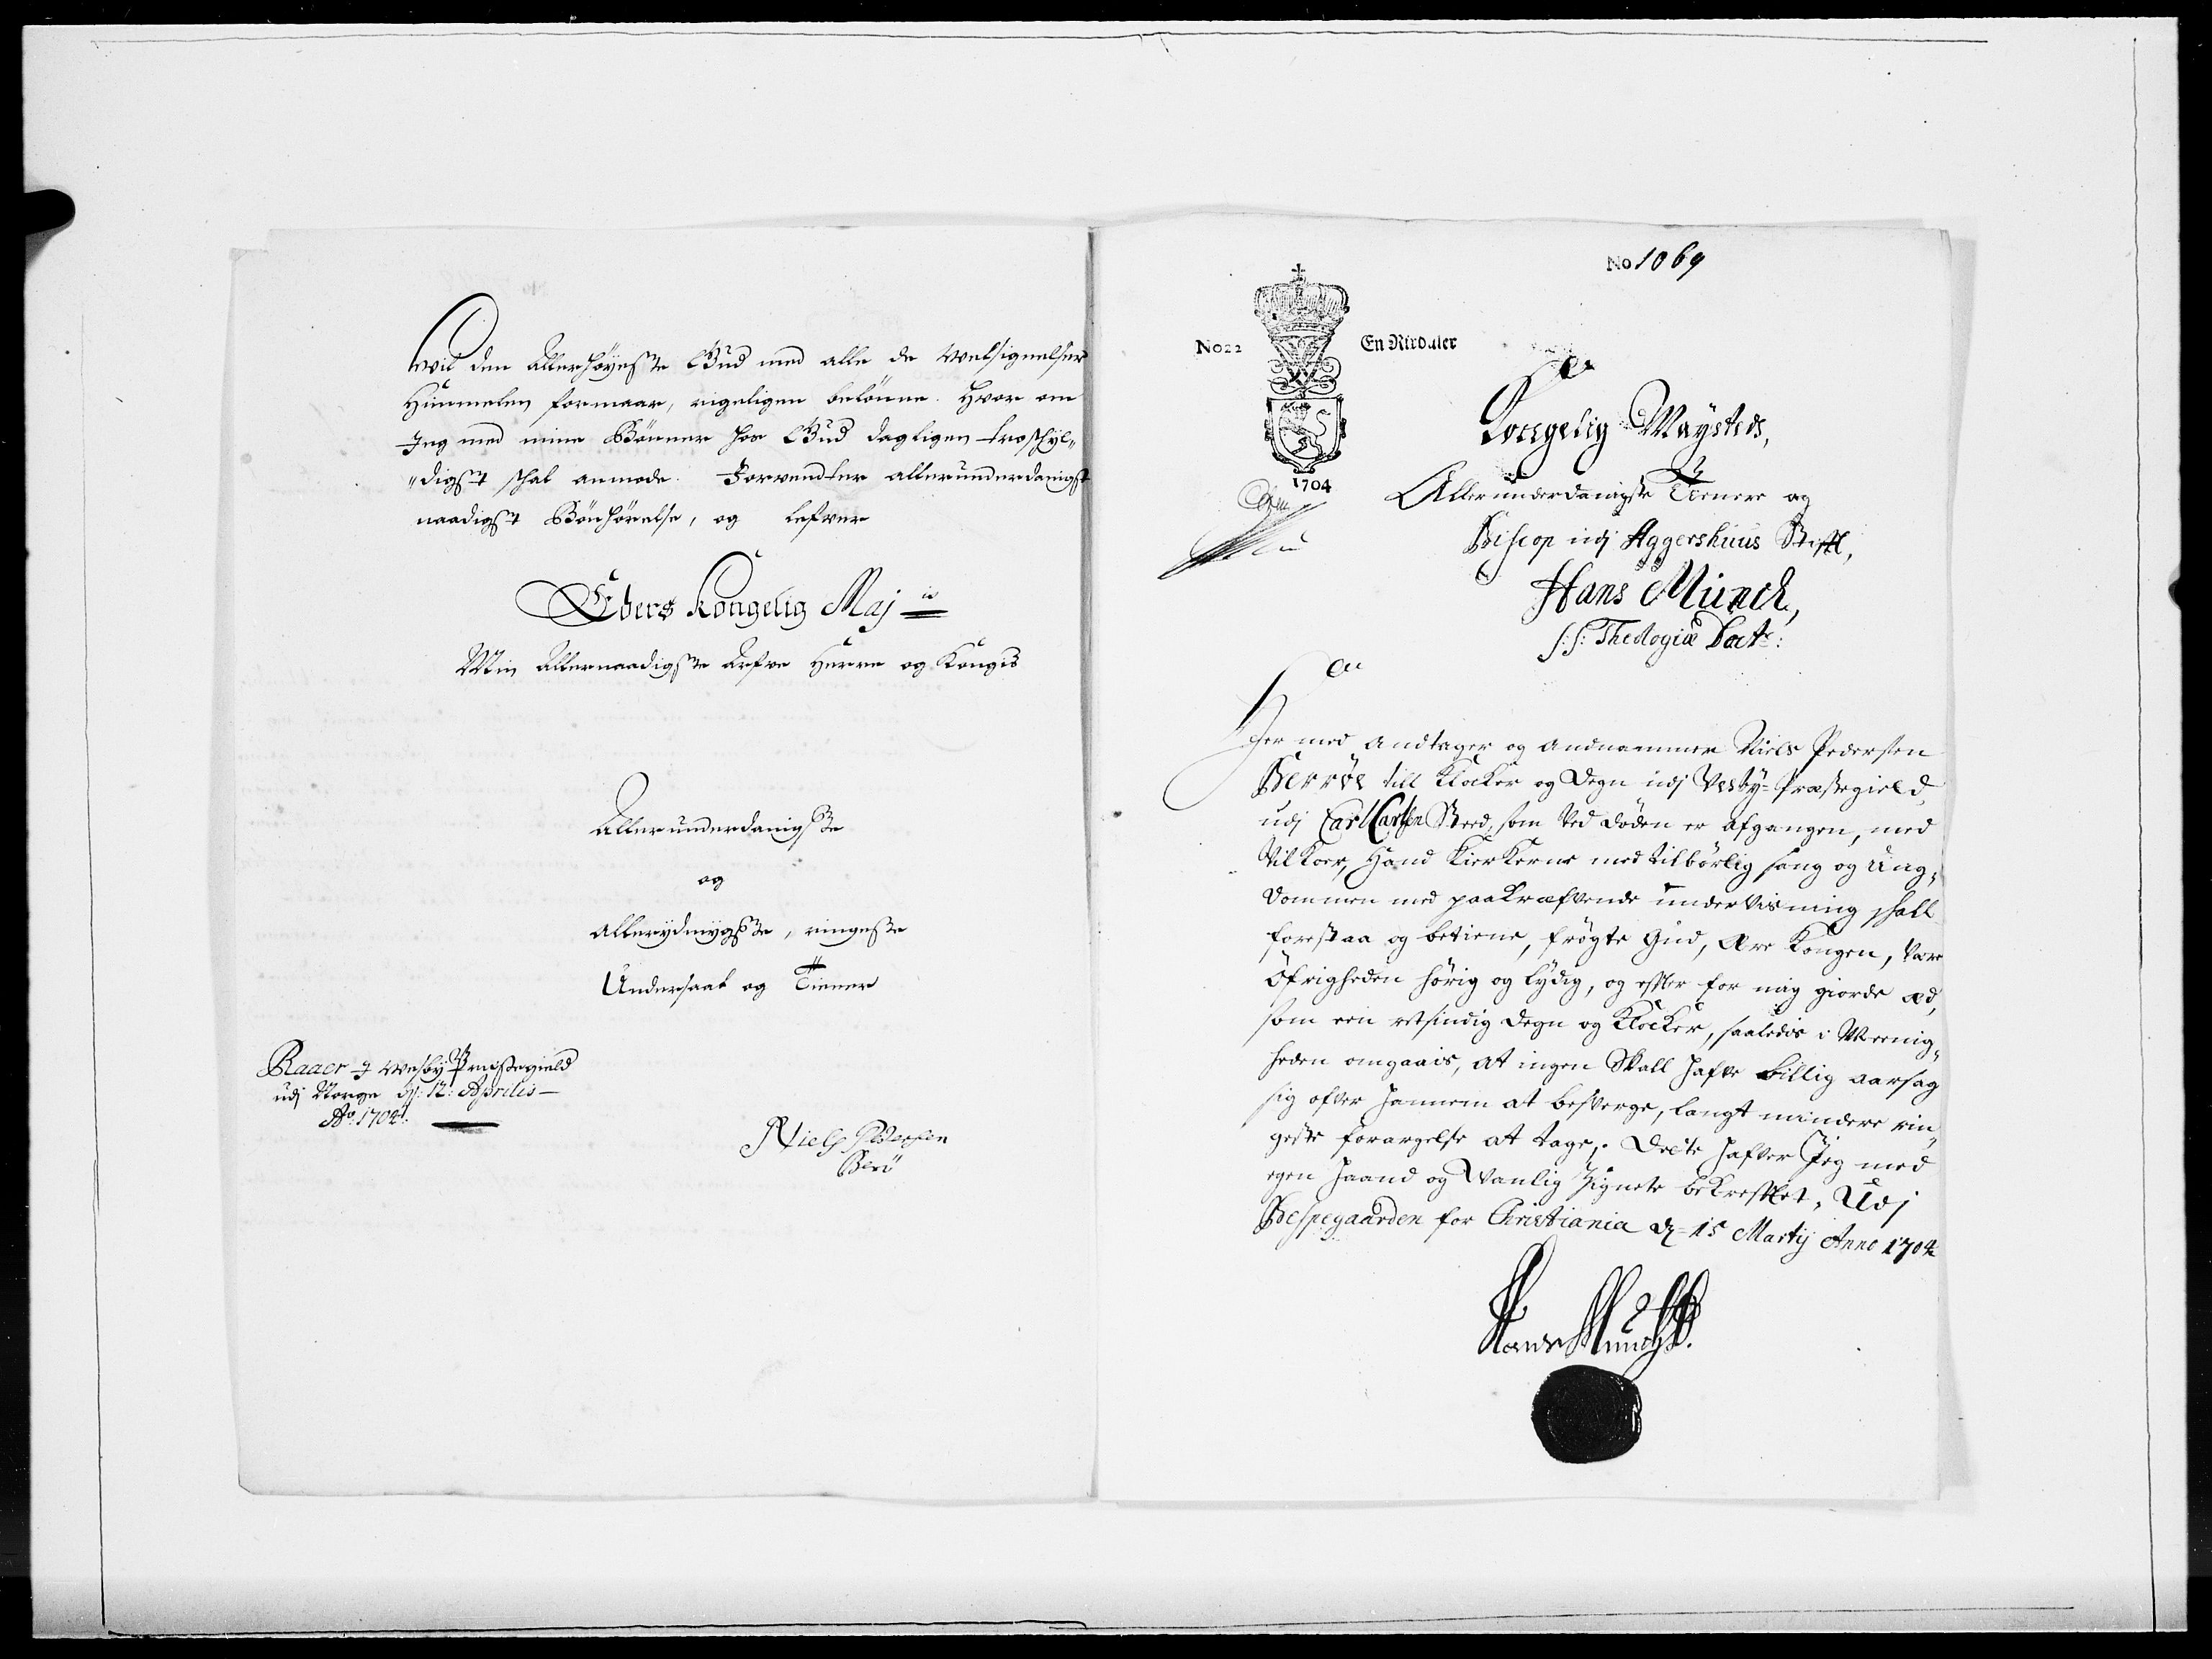 wil den Allerhöyeste Gud med alle de welsignelser
Himmelen formaar, rigeligen belönne. Hvor om
Jeg med mine Bönner hos Gud dagligen troschyl„
„digst schal anmode. Forventer allerunderdanigst
naadigst Bönhörelse, og lefver
Eders Kongelig Maj:ts
Min Allernaadigste Arfve Herre og Kongis
Allerunderdanigste
og
allerydmygste, ringeste
Undersaat og Tiener
Raaer I wesby Præstegield
udj Norge dj: 12: Aprilis
Ao. 1704.
Niels Pedersen
Berö
No 1069
No 22
En Rixdaler
1704
Kongelig Mayesteds,
Allerunderdanigste Tienere og
Biscop udj Aggershuus Stift,
Hans Münch,
S:S: Theologiæ Doct:
Her med andtager og andnammer Niels Pedersen
Berröe till Klocker og Degn udj Vesby=Præstegield,
udj Carl Carlsen Sted, som Ved Döden er afgangen, med
Vilkaar, Hand Kierkerne med tilbörlig sang og Ung,
dommen med paakræfvende underviisning schall
forestaa og betiene, frögte Gud, Ære Kongen, være
Öfrigheden hörig og lydig, og efter for mig giorde æd,
som een retsindig Degn og Klocker, saaledes i Meenig,
heden omgaais, at ingen Skall hafve billig aarsag
sig ofver hannem at besverge, langt mindere rin„
geste forargelse at tage; Dette hafver Jeg med
egen Haand og Vanlig Zignete bekrefftet, Udj
Bispegaarden for Christiania d. 15 Martij Anno 1704
Hans Munch